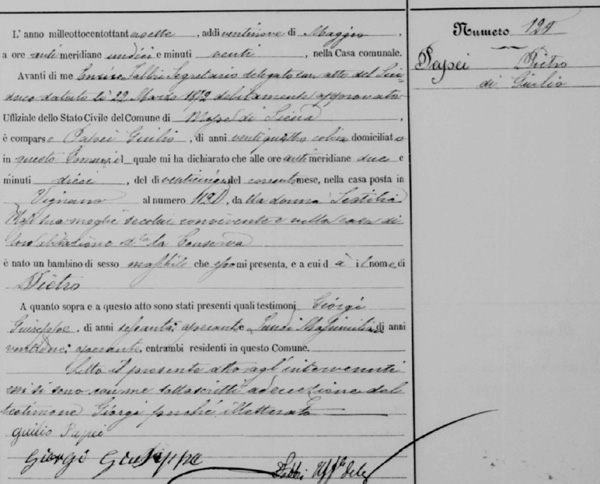 L'anno milleottocentottantasette, addi ventisine di Maggio
a ore antimeridiane undici e minuti venti, nella Casa comunale.
Avanti di me Enrico Fabbri Segretario delegato con atto del Sin
daco datato li 22 Marzo 1872 debitamente approvato
Uffiziale dello Stato Civile del Comune di di Siena
è comparso Papei Giulio, di anni ventiquattro colono domiciliato
in questo Comune il quale mi ha dichiarato che alle ore antimeridiane due e
minuti dieci, del di venticinque del corrente mese, nella casa posta in
Vignano al numero 112D, da lla donna
sua moglie seco lui convivente e nella casa di
la Conserva
è nato un bambino di sesso maschile che egli mi presenta, e a cui dà il nome di
Pietro
A quanto sopra e a questo atto sono stati presenti quali testimoni Giorgi
Giuseppe, di anni sessanta, operante Massimiliano, di anni
operante entrambi residenti in questo Comune.
Letto il presente atto agl'intervenuti
essi si sono con me sottoscritti ad eccezione del
testimone Giorgi perché illetterato
Giulio Papei
Giorgi Giuseppe
Fabbri Uffle deleg
Numero 124
Papei Pietro
di Giulio